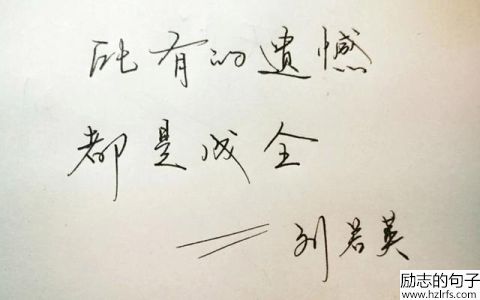 所有的遗憾
都是成全
——刘若英
励志的句子
www.hzlrfs.com